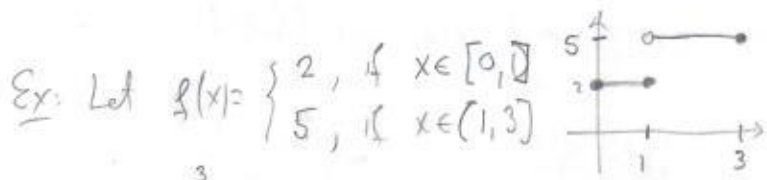 Ex: Let f(x)= { 2, if x∈[0,1]
5, if x∈(1,3]
5
2
1 3
3